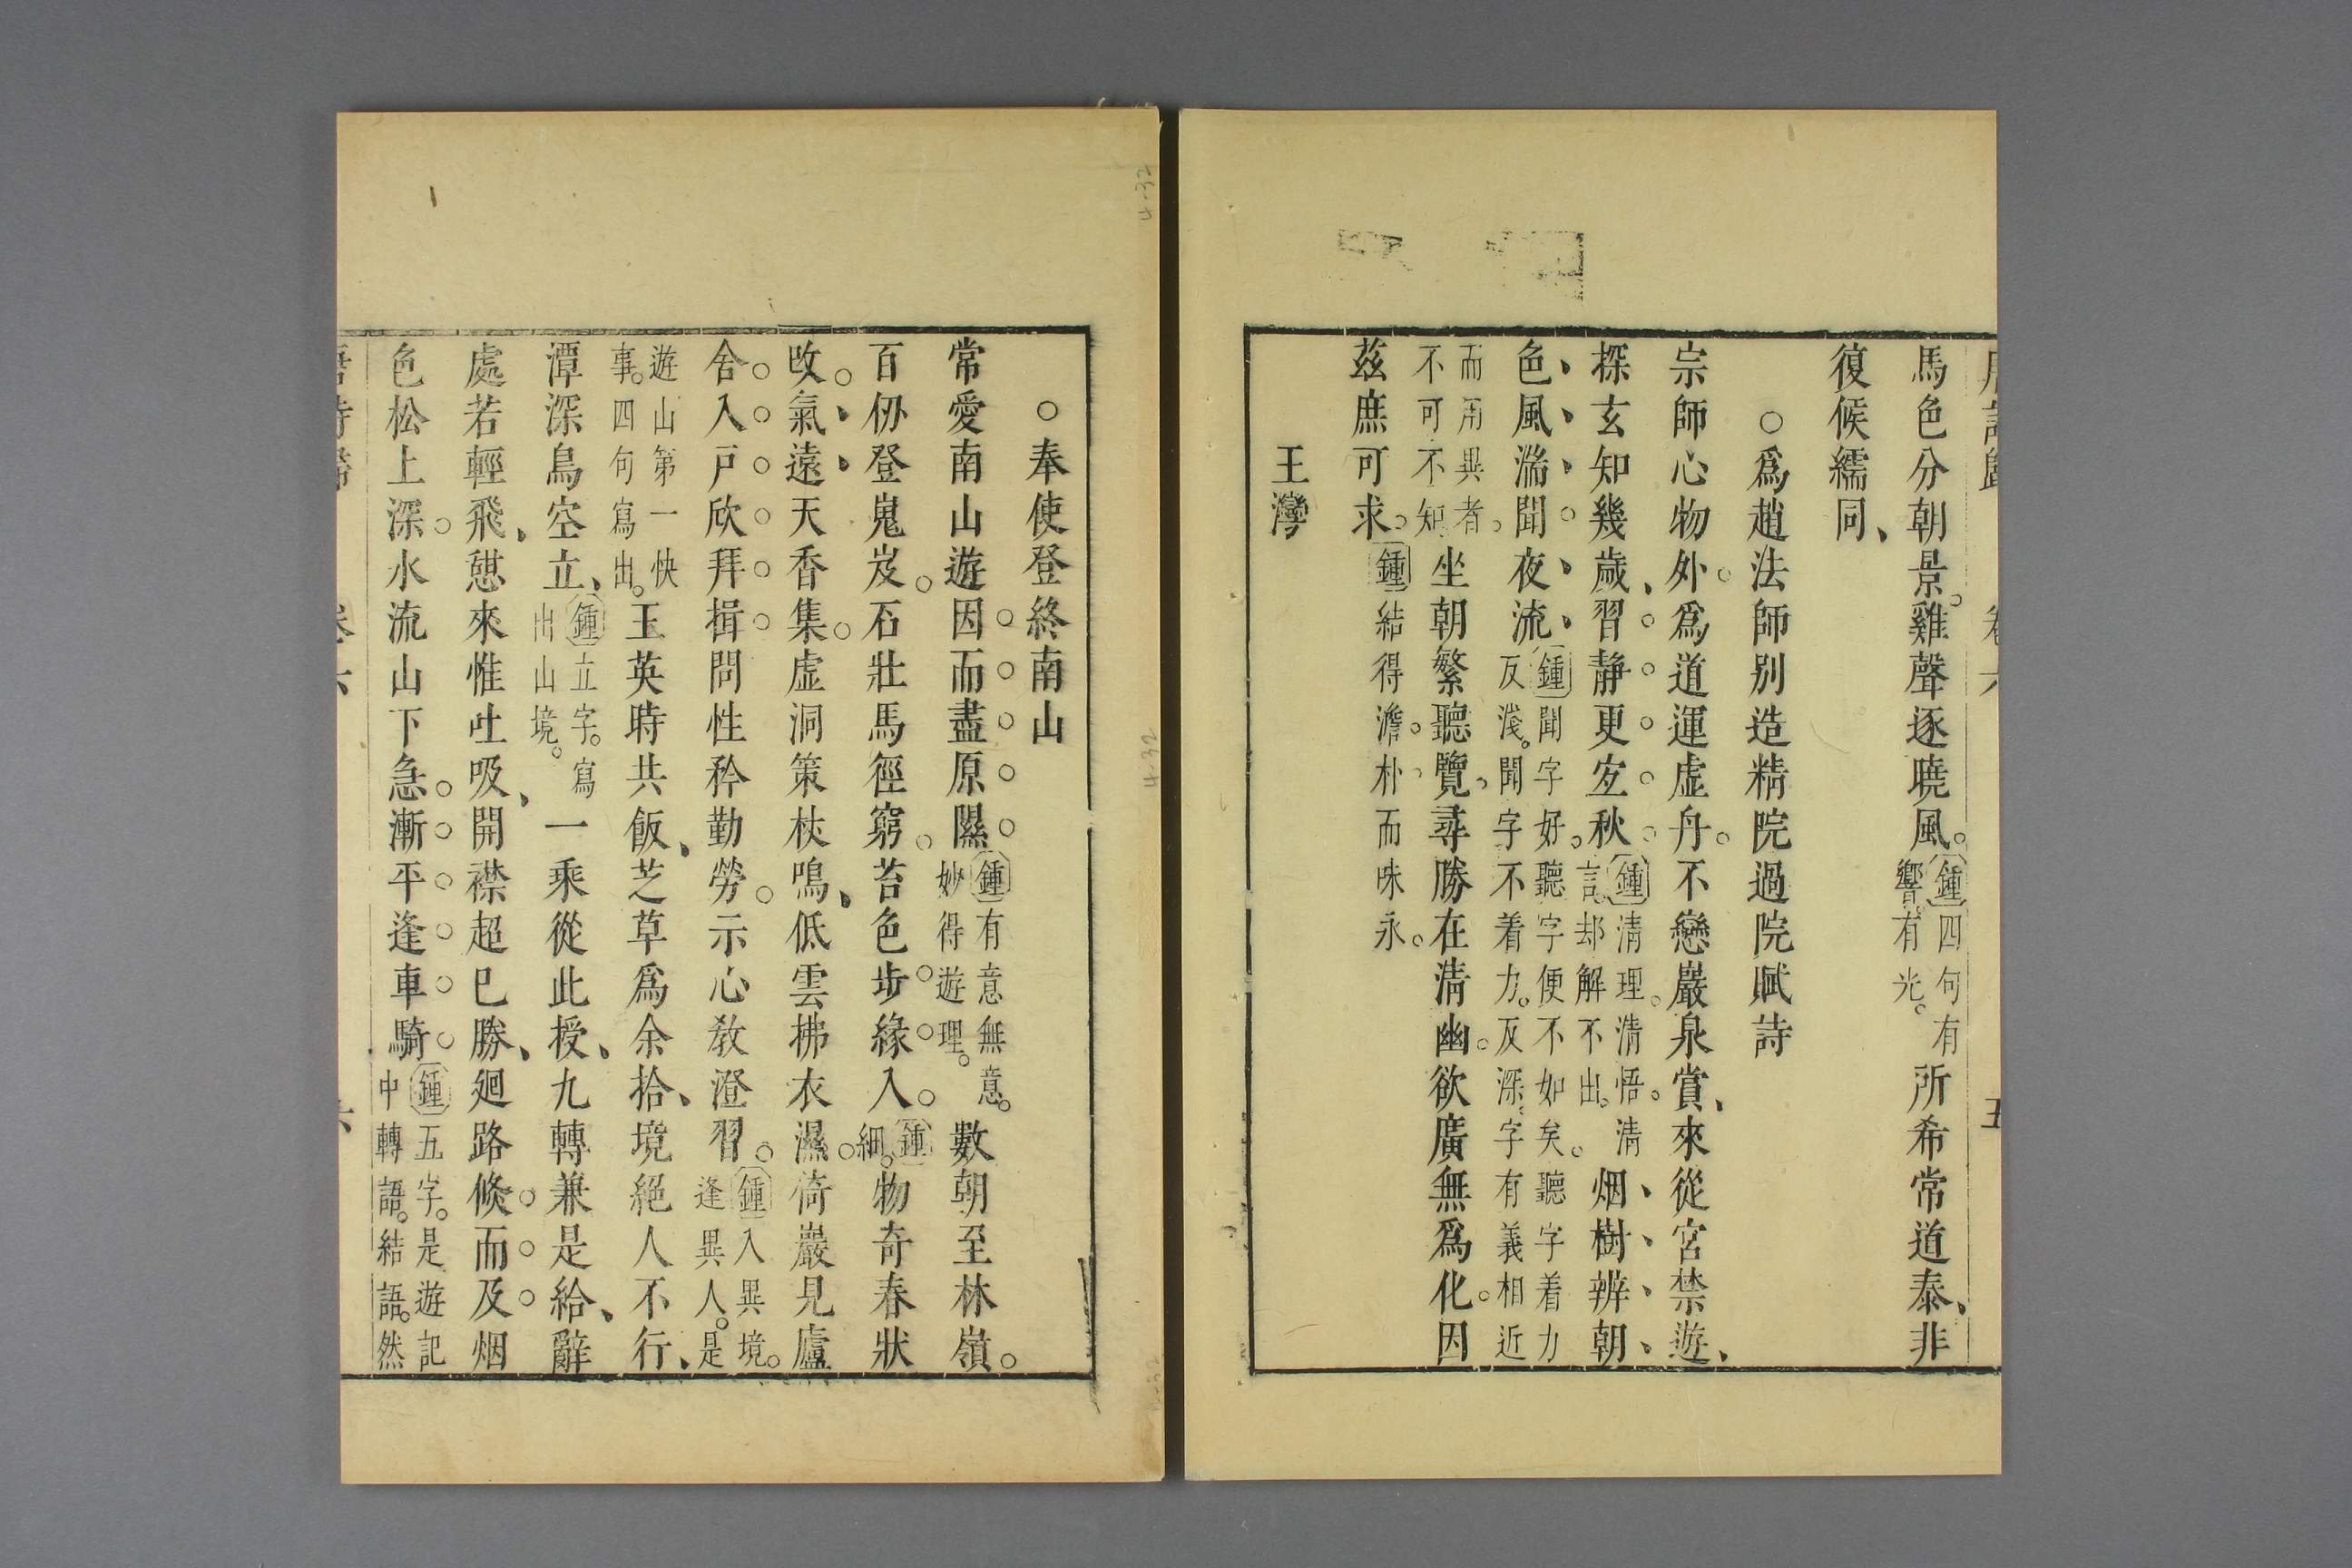 唐詩歸 卷六 五
馬色分朝景。雞聲逐曉風。鍾四句有響。有光。所希常道泰、非
復候繻同、
○為趙法師別造精院過院賦詩
宗師心物外。為道運虛舟。不戀巖泉賞、來從宮禁遊、
探玄知幾歲、習靜更宜秋鍾清理。清悟。清言。却解不出。烟樹辨朝
色、風湍聞夜流、鍾聞字好。聽字便不如矣。聽字着力反淺。聞字不着力。反深。字有義相近
而用異者。不可不知坐朝繁聽覽、尋勝在清幽。欲廣無為化。因
茲庶可求。鍾結得澹。朴而味永。
王灣
○奉使登終南山
常愛南山遊因而盡原隰鍾有意無意。妙得遊理。數朝至林嶺。
百仞登嵬岌。石壯馬徑窮。苔色步緣入。鍾細。物奇春狀
改氣遠天香集。虛洞策杖鳴、低雲拂衣濕。倚巖見廬
舍入戶欣拜揖問性矜勤勞。示心教澄習。鍾入異境。逢異人。是
遊山第一快事。四句寫出。玉英時共飯、芝草為余拾、境絕人不行、
潭深鳥空立、鍾立字。寫出山境。一乘從此授、九轉兼是給、辭
處若輕飛、憩來惟吐吸、開襟超已勝、廻路倏而及烟
色松上深。水流山下急。漸平逢車騎。鍾五字。是遊記中轉語。結語。然
唐詩歸 卷六 六